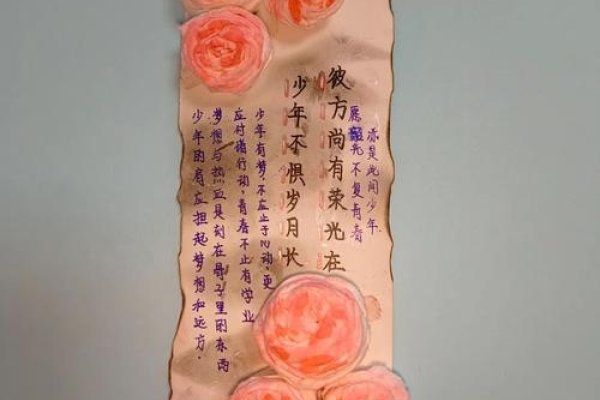 是此间少年
愿光不复青春
彼方尚有荣光在
少年不惧岁月长
少年有梦,不应止于心动,更
应付诸行动,青春不止有学业
梦想与热血是刻在骨子里的东西
少年的肩应担起梦想和远方.